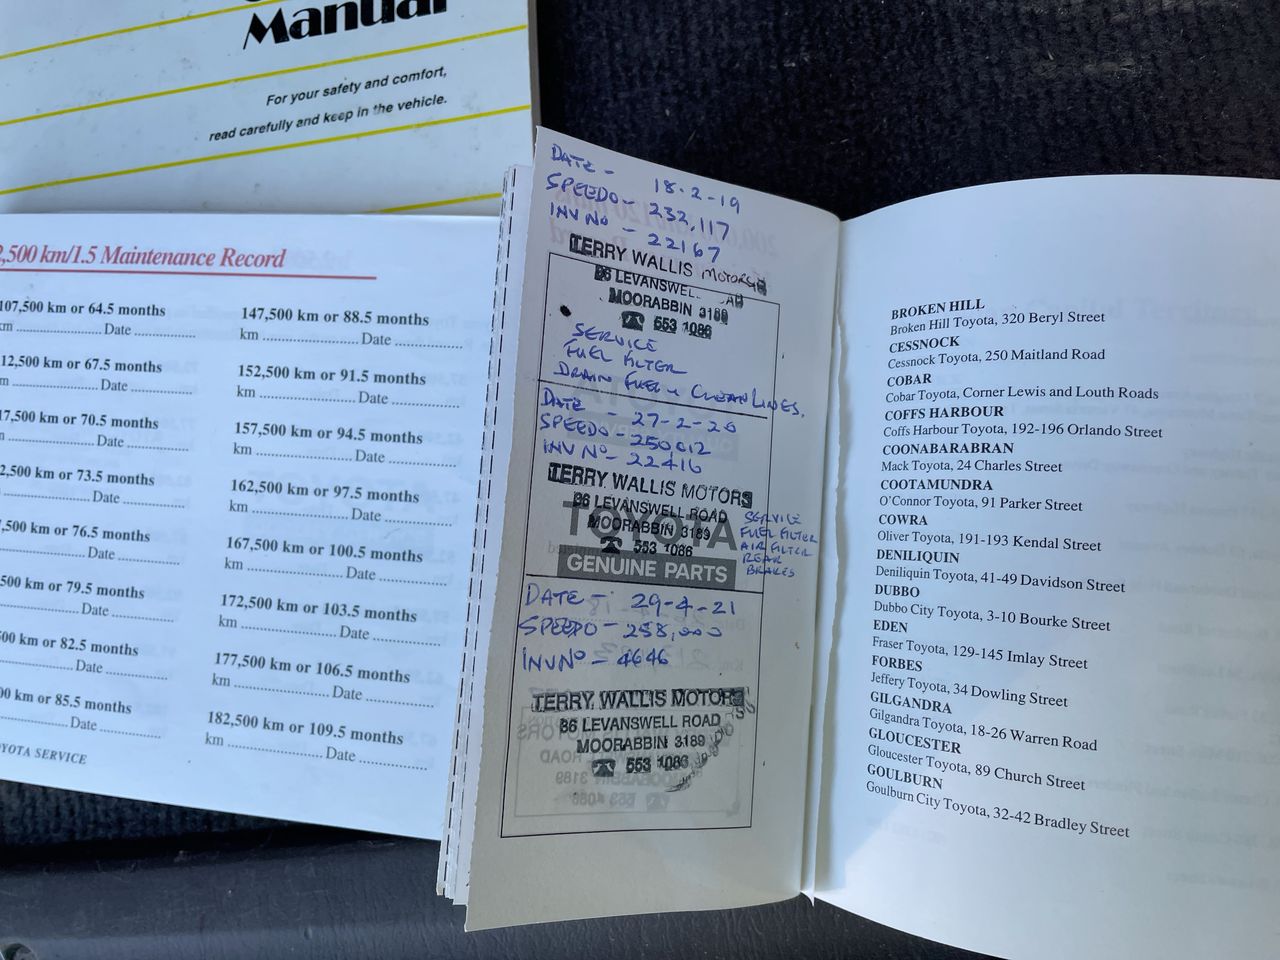 Manual
For your safety and comfort,
read carefully and keep in the vehicle.
2,500 km/1.5 Maintenance Record
107,500 km or 64.5 months
km .................... Date ...............
12,500 km or 67.5 months
Date ...............
17,500 km or 70.5 months
Date ...............
2,500 km or 73.5 months
Date ...............
,500 km or 76.5 months
Date ...............
500 km or 79.5 months
Date ...............
00 km or 82.5 months
Date ...............
00 km or 85.5 months
Date ...............
OYOTA SERVICE
147,500 km or 88.5 months
km .................... Date ...............
152,500 km or 91.5 months
km .................... Date ...............
157,500 km or 94.5 months
km .................... Date ...............
162,500 km or 97.5 months
km .................... Date ...............
167,500 km or 100.5 months
km .................... Date ...............
172,500 km or 103.5 months
km .................... Date ...............
177,500 km or 106.5 months
km .................... Date ...............
182,500 km or 109.5 months
km .................... Date ...............
DATE - 18-2-19
SPEEDO - 232,117
INV No - 22167
TERRY WALLIS MOTORS
86 LEVANSWELL
MOORABBIN 3189
☎ 553 1086
SERVICE
FUEL FILTER
DRAIN FUEL & CLEAN LINES.
DATE - 27-2-20
SPEEDO - 250,012
INV No - 22416
TERRY WALLIS MOTORS
86 LEVANSWELL ROAD
MOORABBIN 3189
☎ 553 1086
SERVICE
FUEL FILTER
AIR FILTER
REAR
BRAKES
TOYOTA
GENUINE PARTS
DATE - 29-4-21
SPEEDO - 258,000
INV No - 4646
TERRY WALLIS MOTORS
86 LEVANSWELL ROAD
MOORABBIN 3189
☎ 553 1086
BROKEN HILL
Broken Hill Toyota, 320 Beryl Street
CESSNOCK
Cessnock Toyota, 250 Maitland Road
COBAR
Cobar Toyota, Corner Lewis and Louth Roads
COFFS HARBOUR
Coffs Harbour Toyota, 192-196 Orlando Street
COONABARABRAN
Mack Toyota, 24 Charles Street
COOTAMUNDRA
O'Connor Toyota, 91 Parker Street
COWRA
Oliver Toyota, 191-193 Kendal Street
DENILIQUIN
Deniliquin Toyota, 41-49 Davidson Street
DUBBO
Dubbo City Toyota, 3-10 Bourke Street
EDEN
Fraser Toyota, 129-145 Imlay Street
FORBES
Jeffery Toyota, 34 Dowling Street
GILGANDRA
Gilgandra Toyota, 18-26 Warren Road
GLOUCESTER
Gloucester Toyota, 89 Church Street
GOULBURN
Goulburn City Toyota, 32-42 Bradley Street